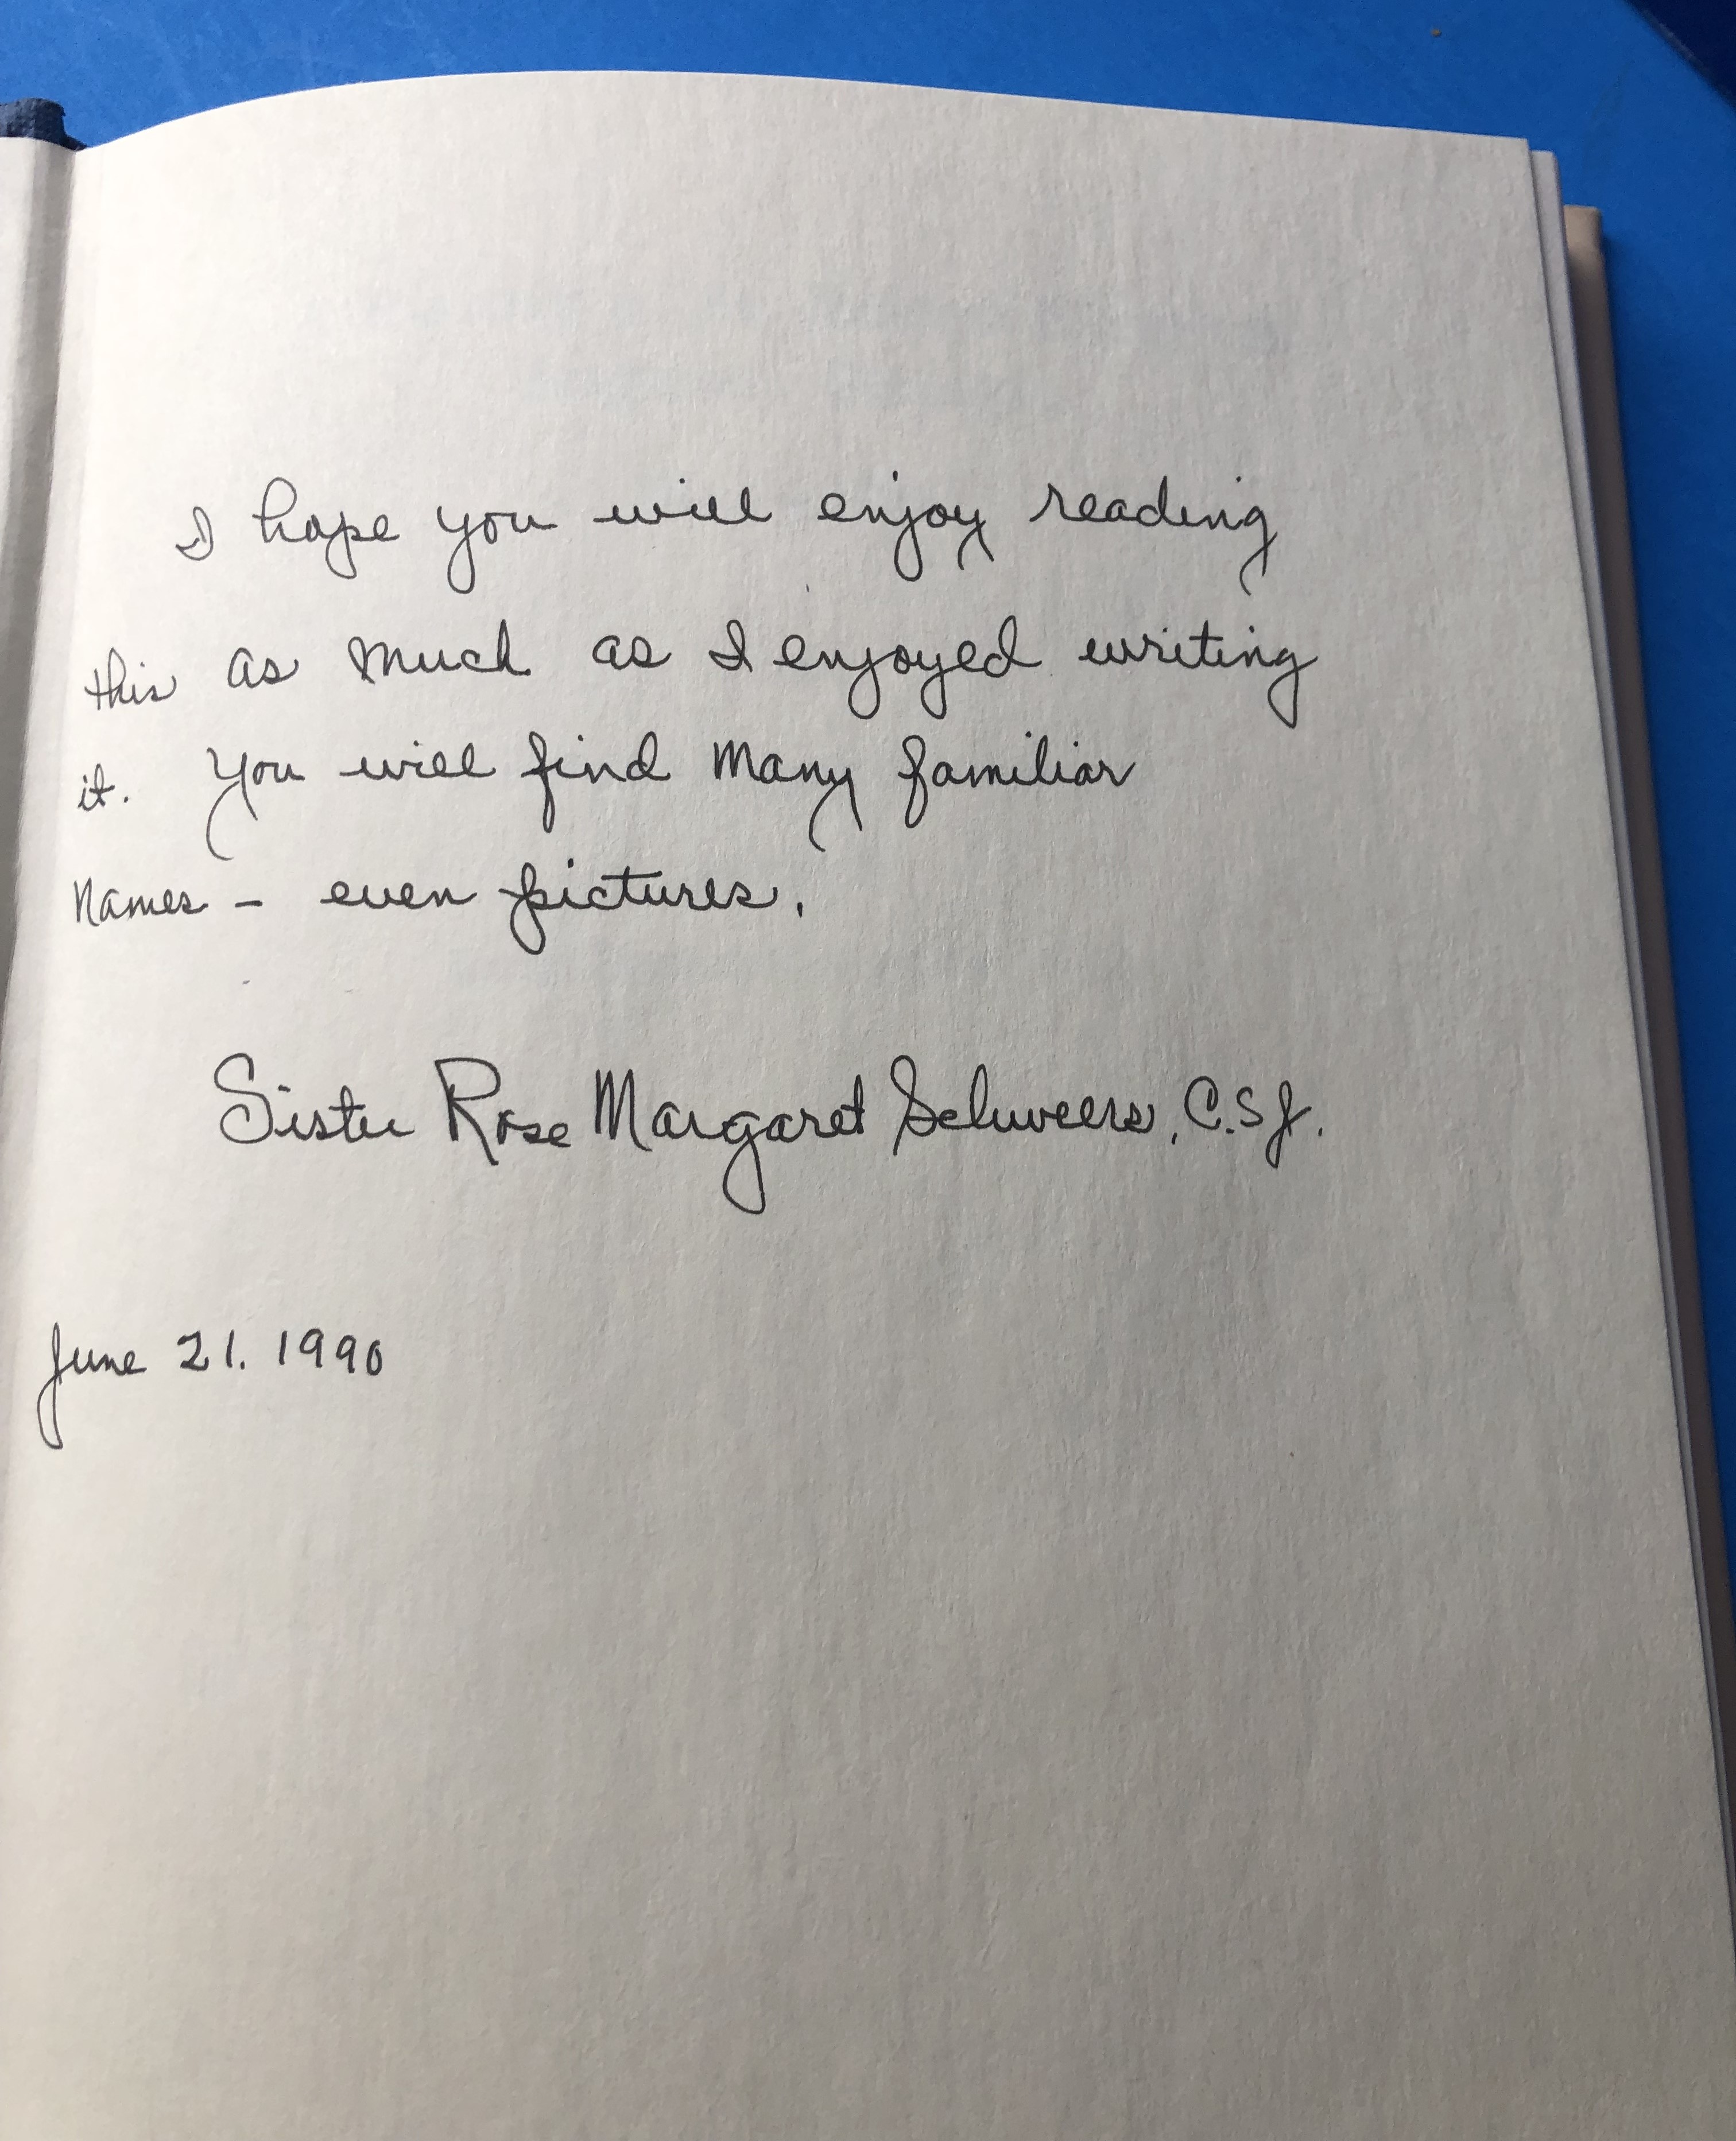 I hope you will enjoy reading
this as much as I enjoyed writing
it. You will find many familiar
names - even pictures.
Sister Rose Margaret Schweers, C.S.J.
June 21. 1990